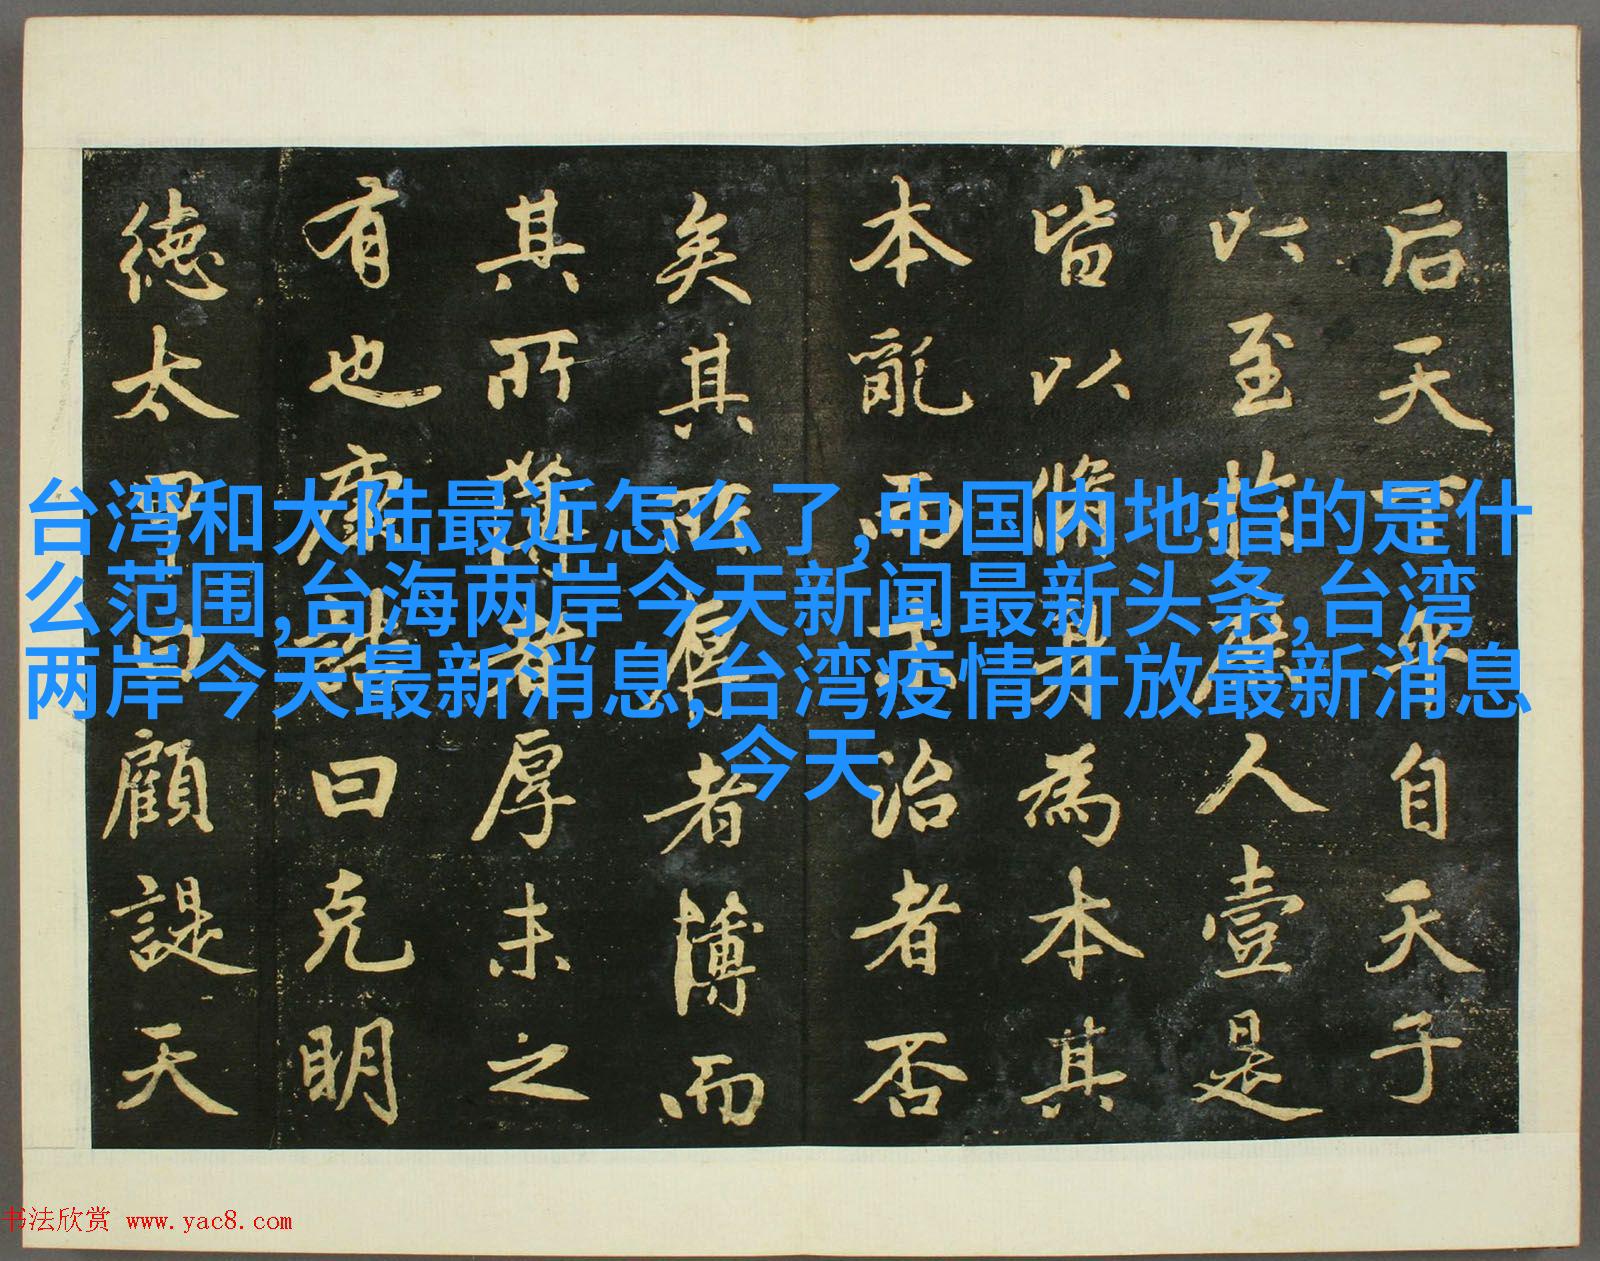 台湾和大陆最近怎么了,中国内地指的是什
么范围,台海两岸今天新闻最新头条,台湾
两岸今天最新消息,台湾疫情开放最新消息
今天
后天下平自天子
以至於庶人壹是
皆以脩身為本其
本亂而末治者否
矣其所厚者薄而
其所薄者厚未之
有也康誥曰克明
德太甲曰顧諟天
书法欣赏 www.yac8.com